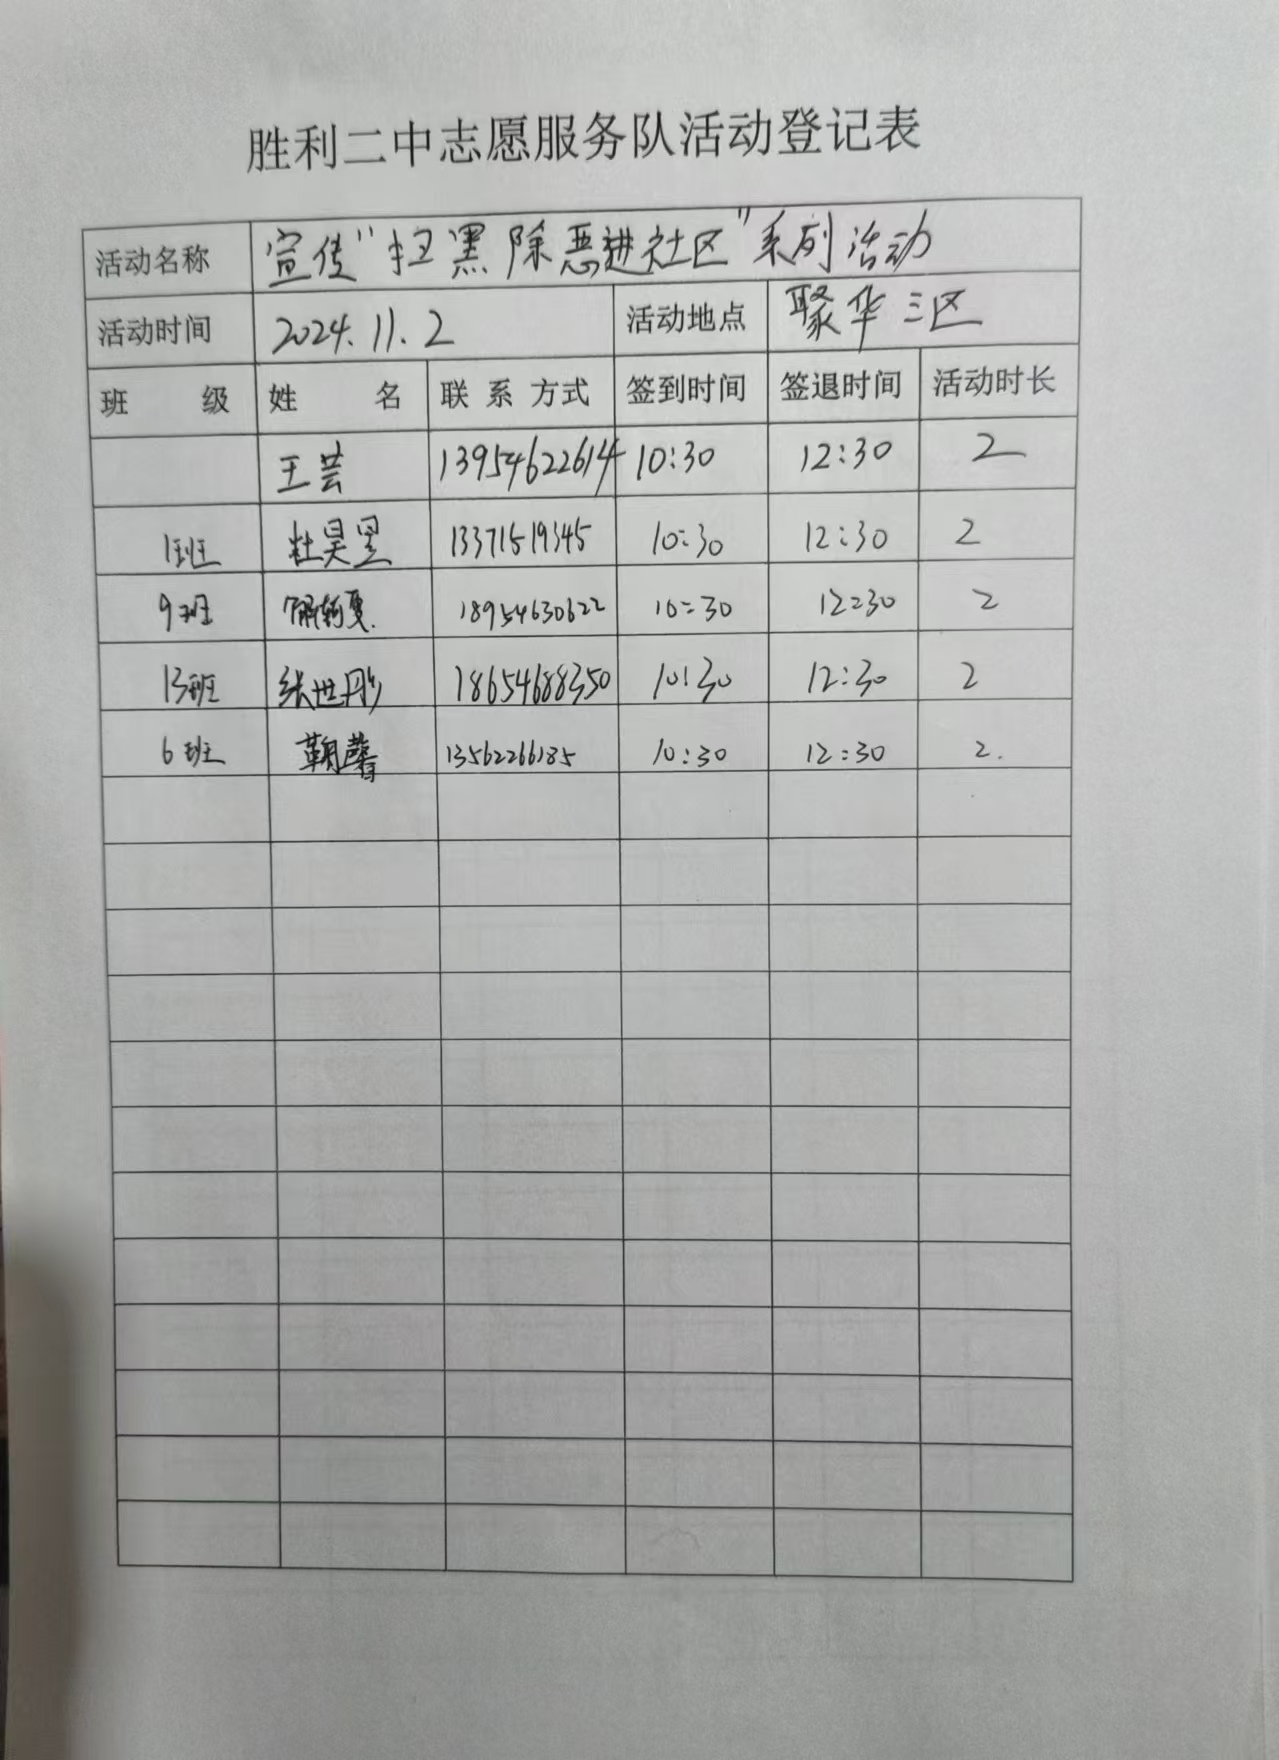 胜利二中志愿服务队活动登记表
活动名称 宣传"扫黑除恶进社区"系列活动
活动时间 2024.11.2 活动地点 聚华三区
班 级 姓 名 联 系 方式 签到时间 签退时间 活动时长
王芸 13954622614 10:30 12:30 2
1班 杜昊昱 13371519345 10:30 12:30 2
9班 18954630622 10:30 12:30 2
13班 张世彤 18654688350 10:30 12:30 2
6班 鞠馨 13562266185 10:30 12:30 2.